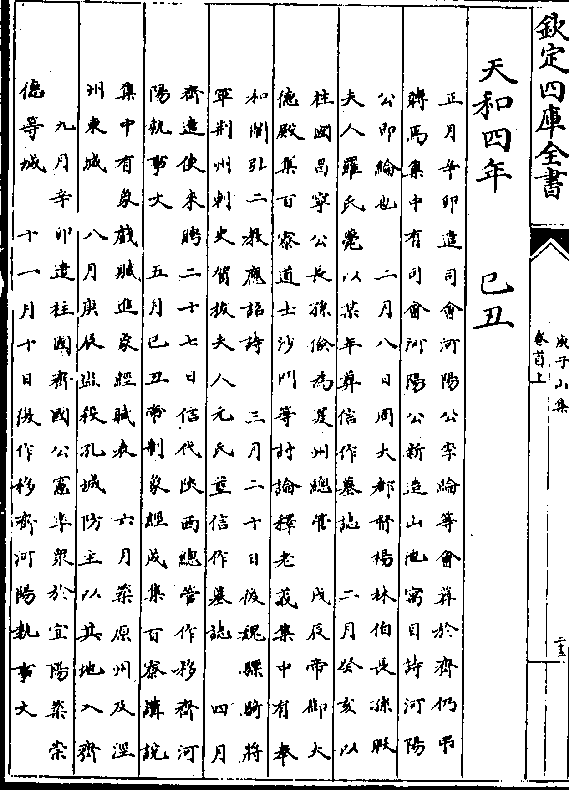 欽定四庫全書
庾子山集
卷首上
二十三
天和四年 己丑
正月辛卯遣司會河陽公李綸等會葬於齊仍弔
賻焉集中有司會河陽公新造山池寓目詩河陽
公即綸也 二月八日周大都督楊林伯長孫瑕
夫人羅氏薨以某年葬信作墓誌 二月癸亥以
柱國昌寧公長孫儉為夏州總管 戊辰帝御大
德殿集百寮道士沙門等討論釋老義集中有奉
和闡弘二教應詔詩 三月二十日後魏驃騎將
軍荆州刺史賀拔夫人元氏葬信作墓誌 四月
齊遣使來聘 二十七日信代陝西總管作移齊河
陽執事文 五月己丑帝制象經成集百寮講說
集中有象戲賦進象經賦表 六月築原州及涇
州東城 八月庚辰盜殺孔城防主以其地入齊
九月辛卯遣柱國齊國公憲率衆於宜陽築崇
德等城 十一月十日復作移齊河陽執事文